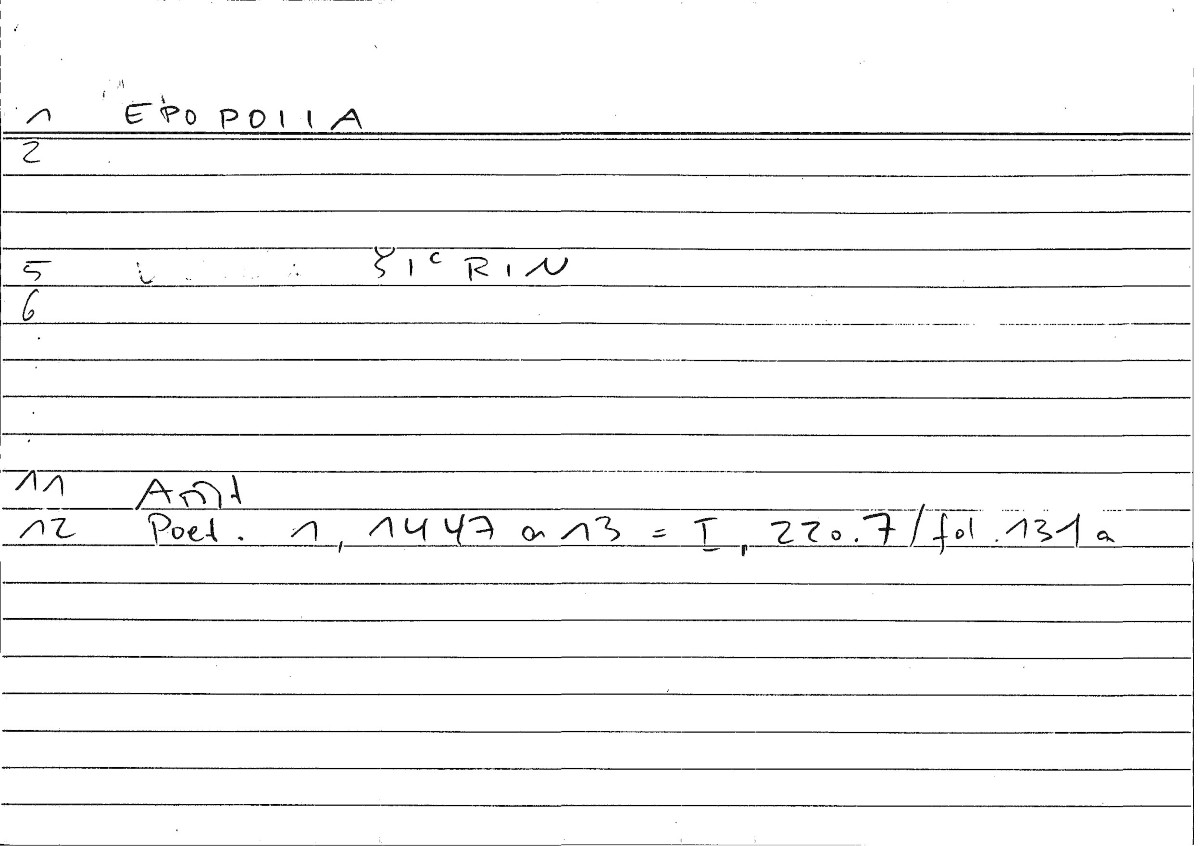 1 EPOPOIIA
2
5 ŠIʿRIN
6
11 Arist
12 Poet. 1, 1447 a 13 = I, 220.7/fol. 131a